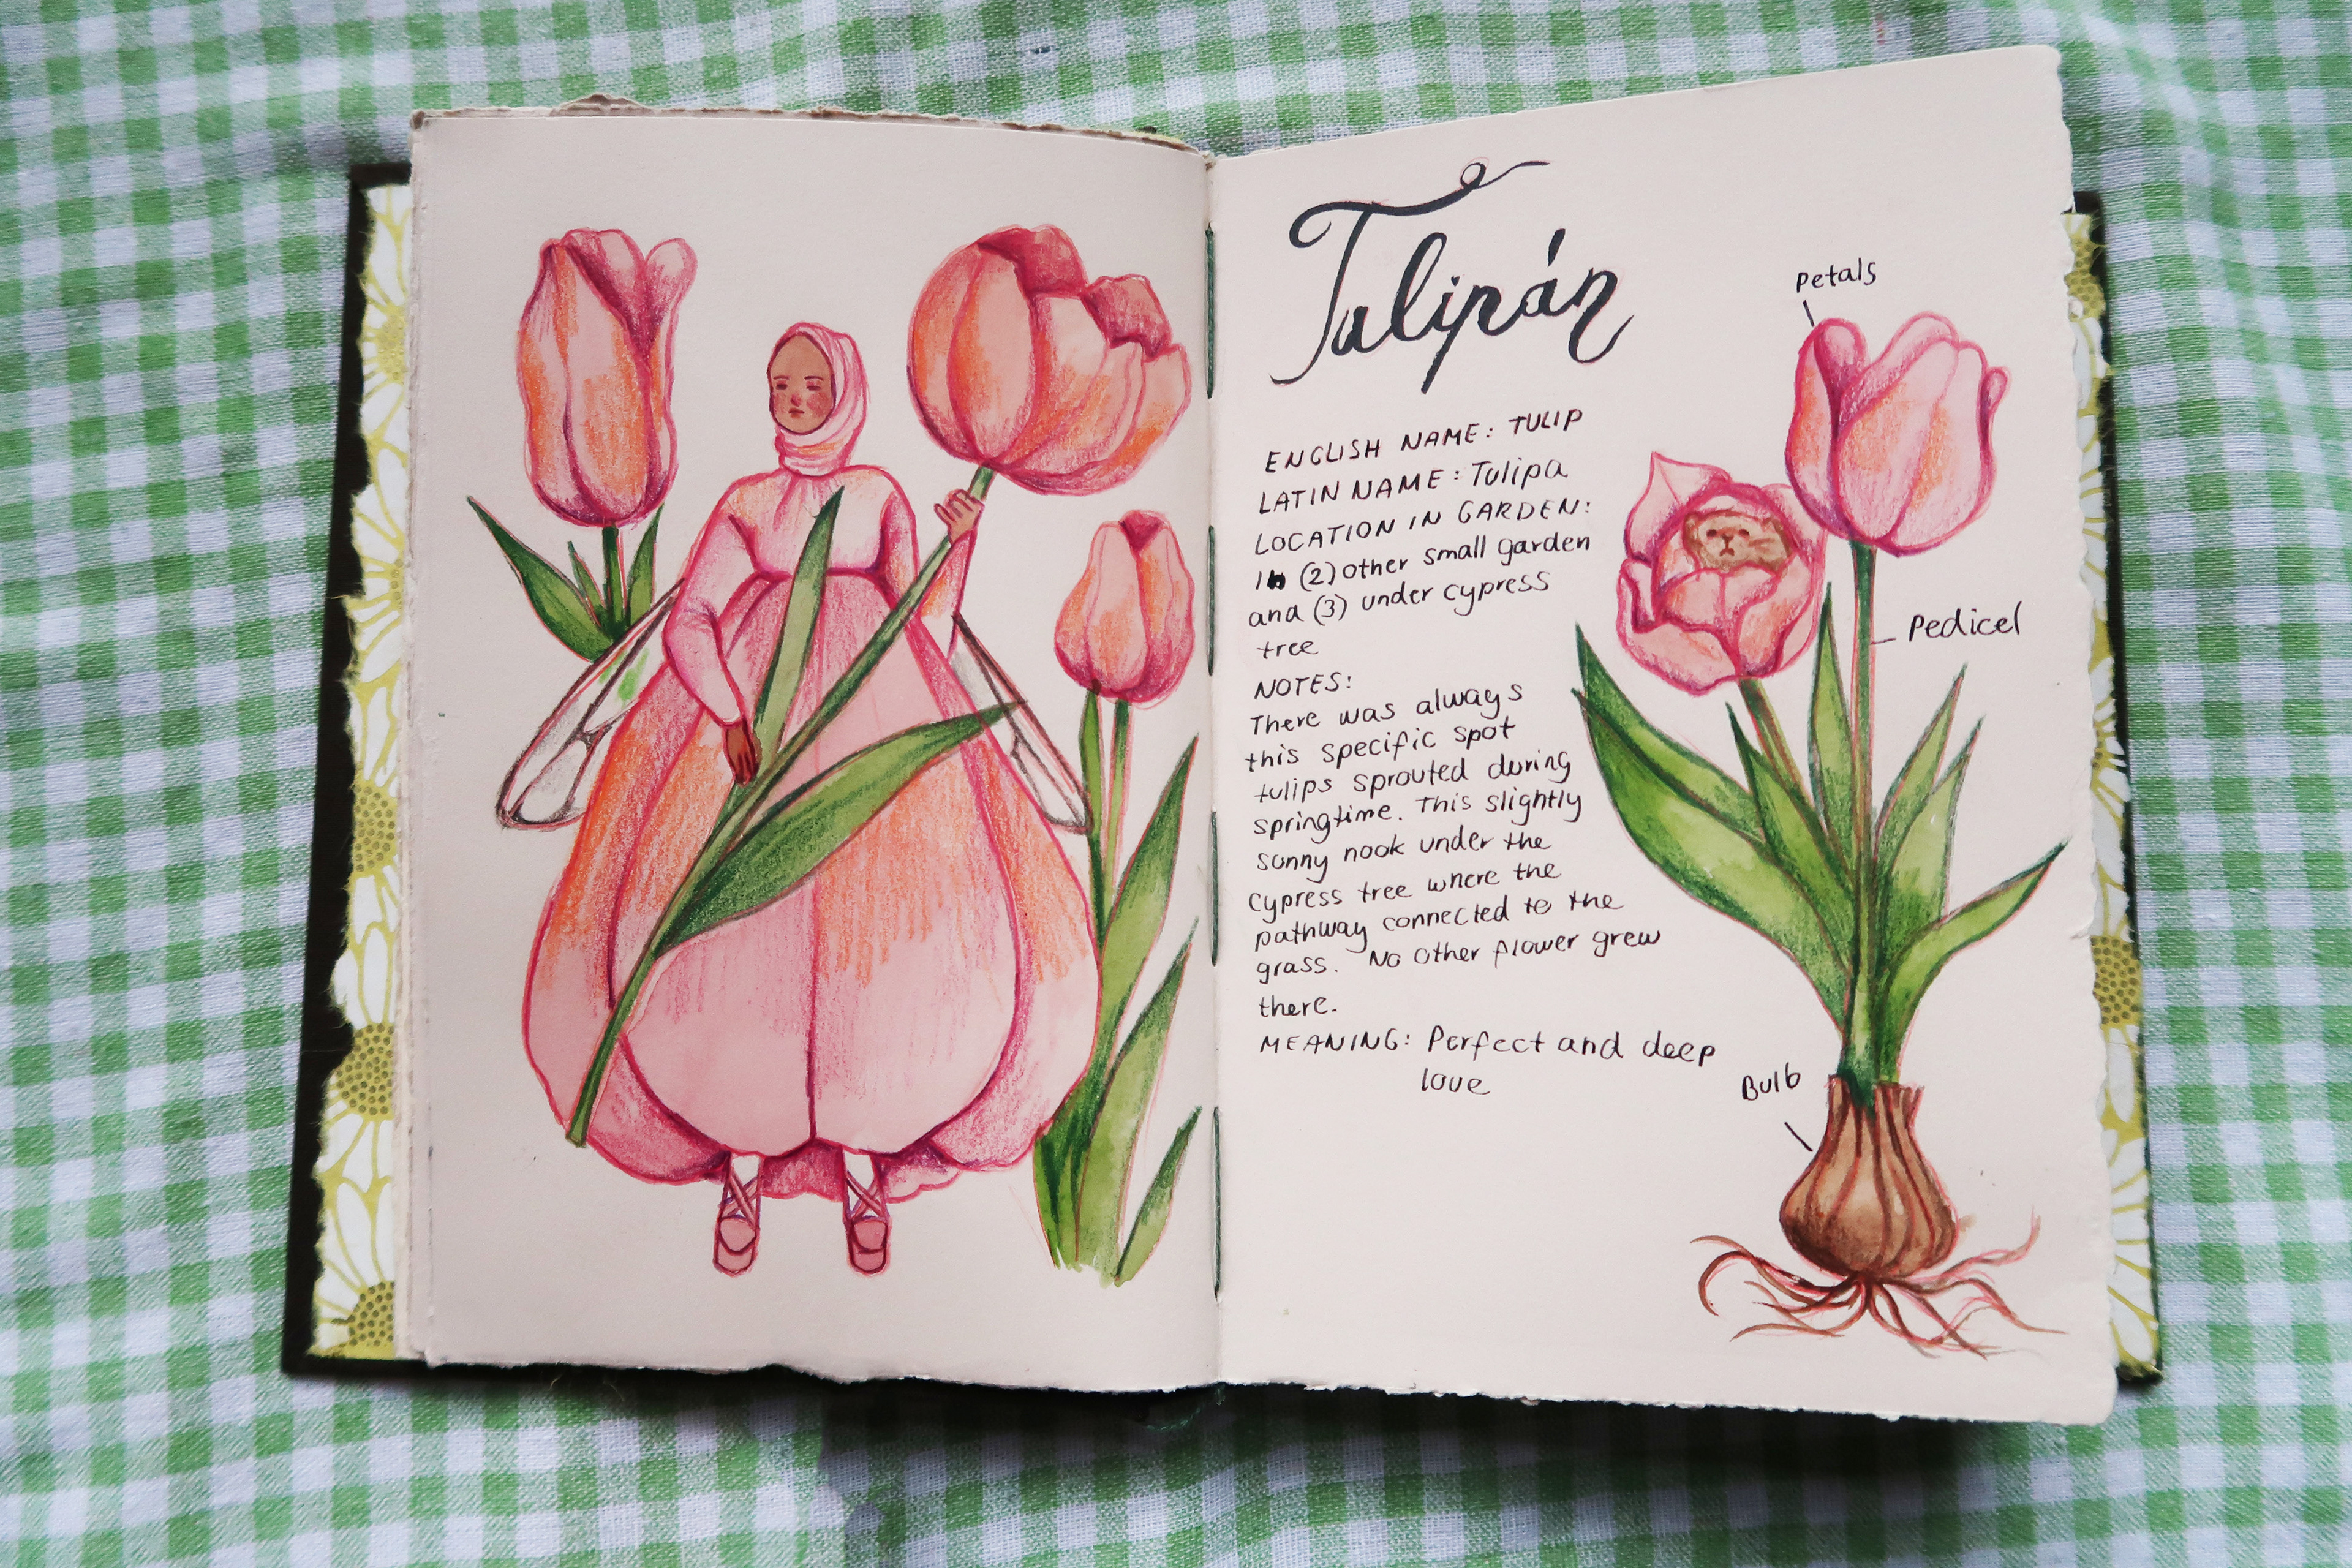 Tulipán
ENGLISH NAME: TULIP
LATIN NAME: Tulipa
LOCATION IN GARDEN:
In (2) other small garden
and (3) under cypress
tree
NOTES:
There was always
this specific spot
tulips sprouted during
springtime. This slightly
sunny nook under the
cypress tree where the
pathway connected to the
grass. No other flower grew
there.
MEANING: Perfect and deep
love
Petals
Pedicel
Bulb